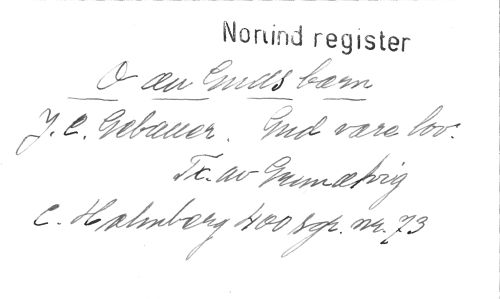 Nortind register
O du Guds barn
J. C. Gebauer. Gud være lov.
Tx. av Grundtvig
C. Holmberg 400 sgr. nr. 73